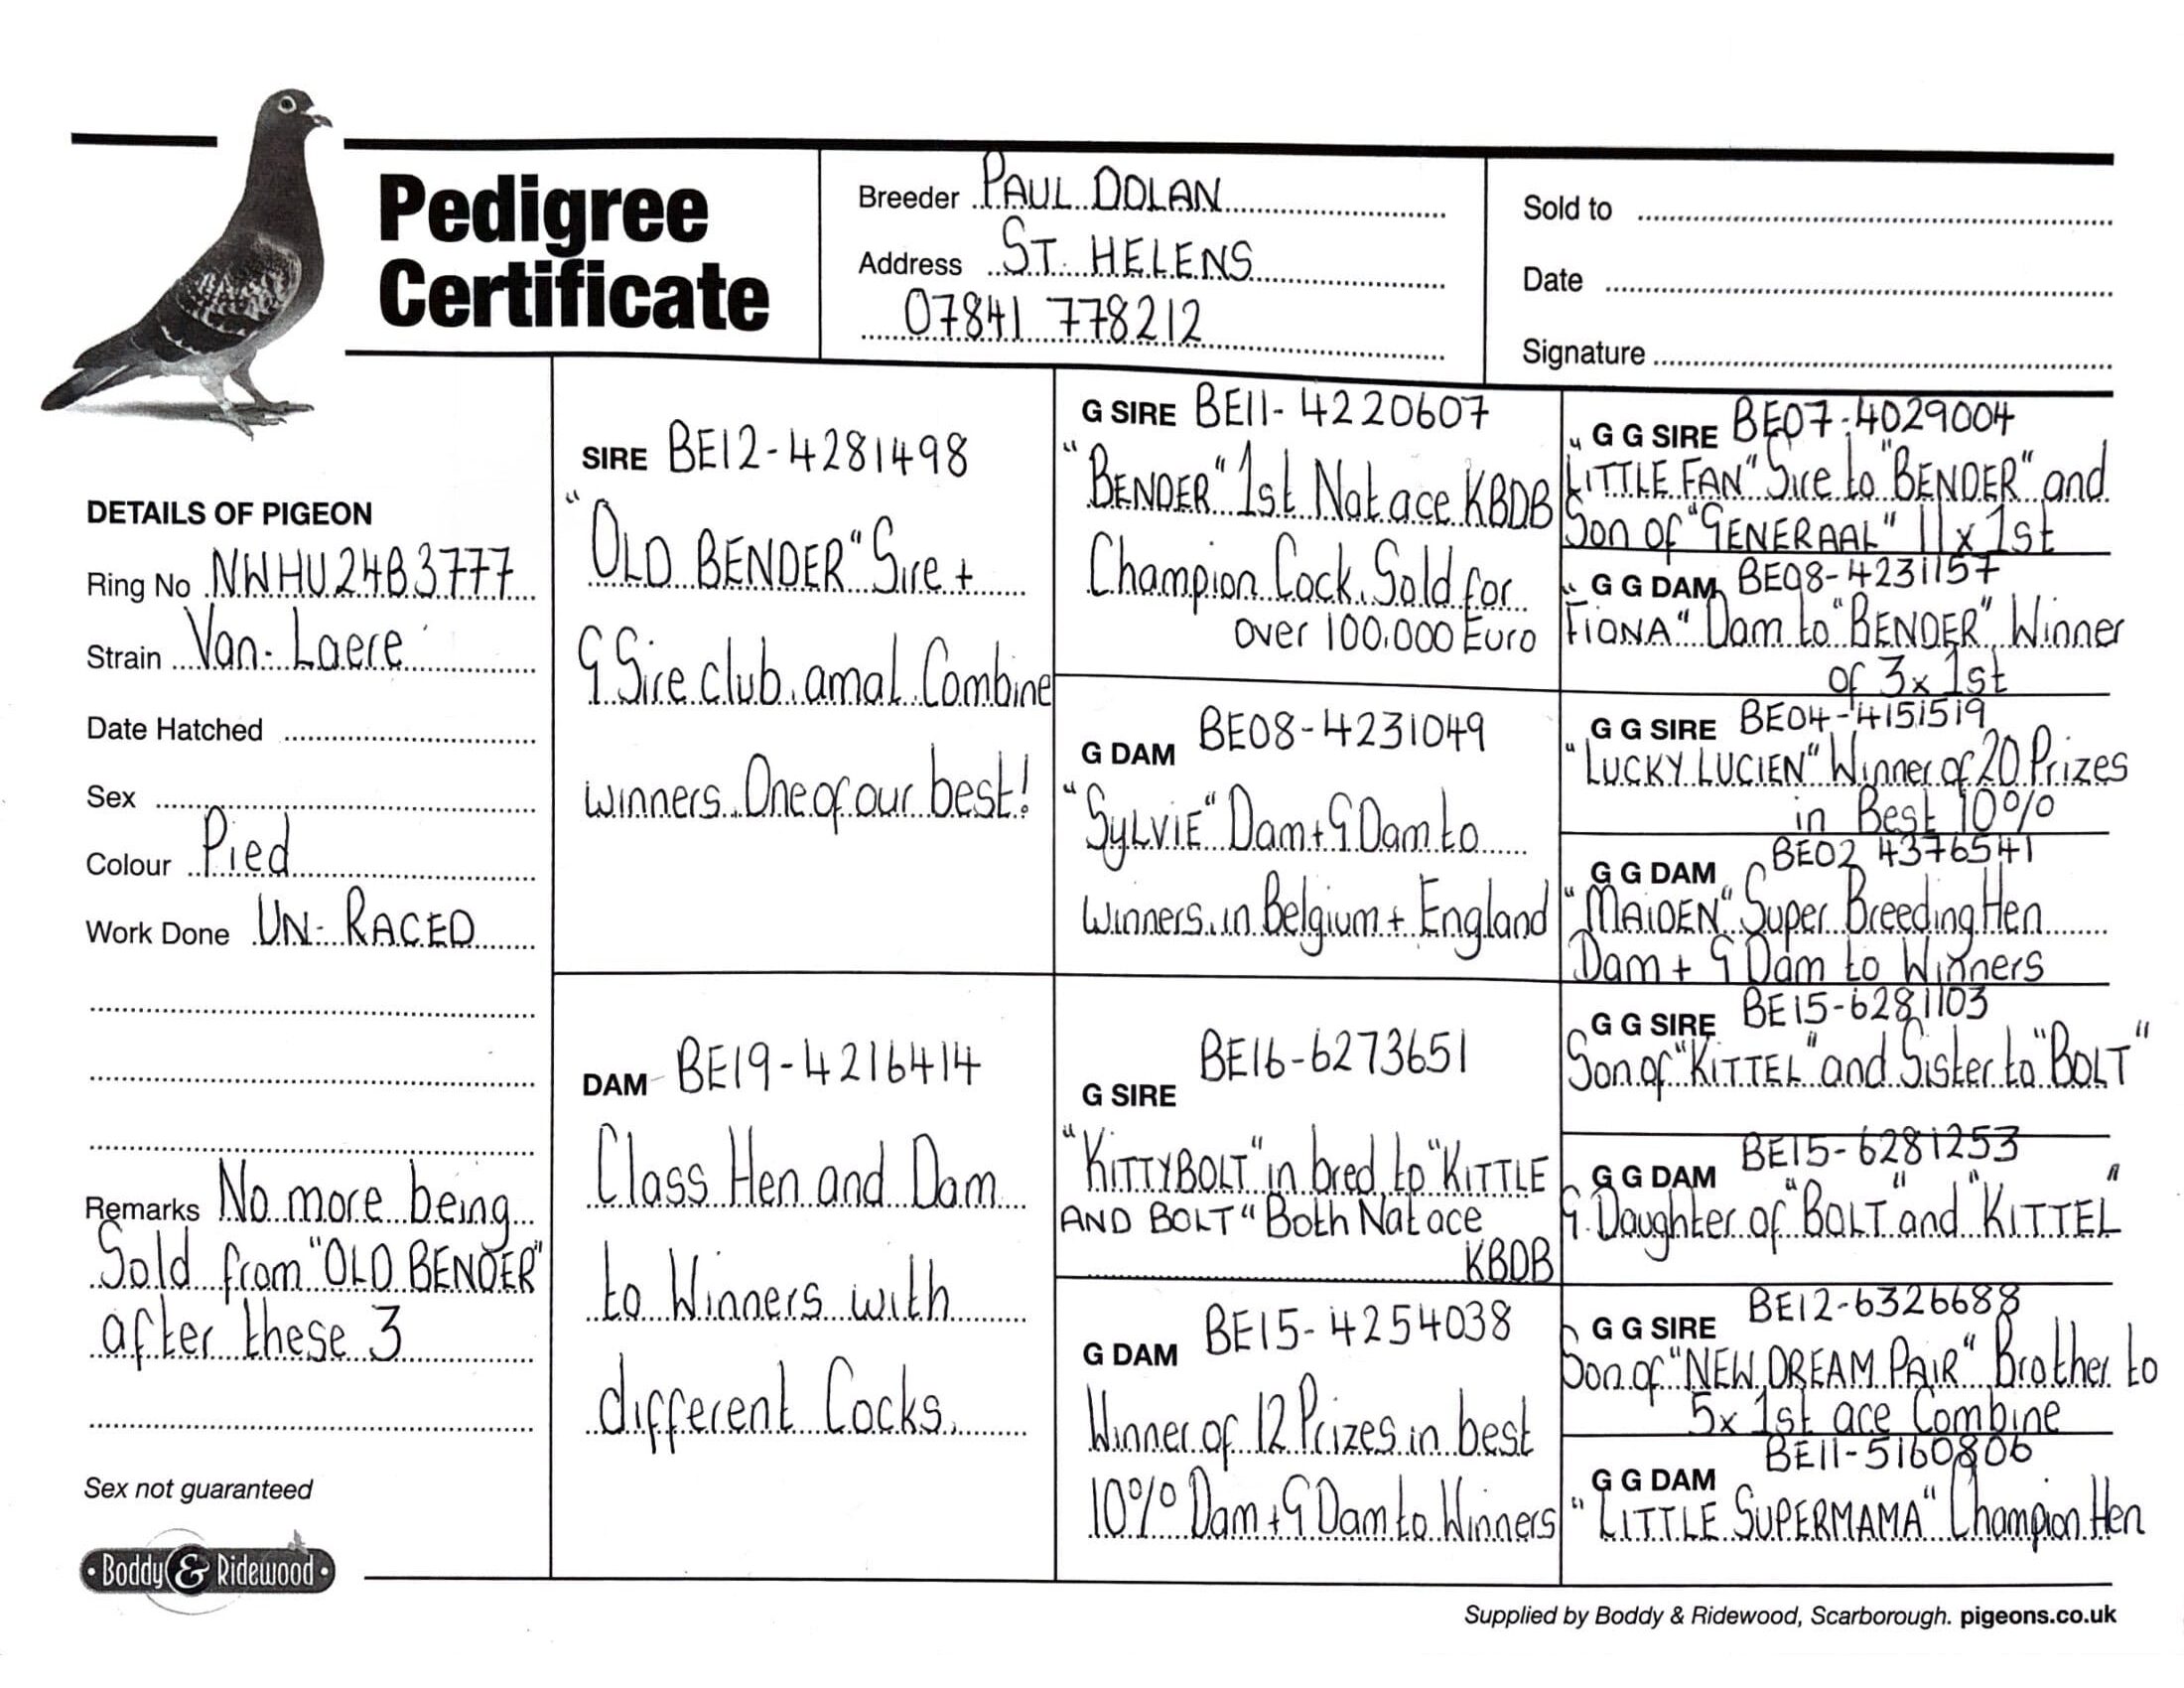 Pedigree
Certificate
Breeder PAUL DOLAN
Address ST. HELENS
07841 778212
Sold to
Date
Signature
DETAILS OF PIGEON
Ring No NWHU24B3777
Strain Van-Laere
Date Hatched
Sex
Colour Pied
Work Done UN-RACED
Remarks No more being
Sold from "OLD BENDER"
after these 3
Sex not guaranteed
Boddy & Ridewood
SIRE BE12-4281498
"OLD BENDER" Sire +
G Sire club, amal Combine
winners. One of our best!
DAM BE19-4216414
Class Hen and Dam
to Winners with
different Cocks.
G SIRE BE11-4220607
"BENDER" 1st Nat ace KBDB
Champion Cock. Sold for
over 100.000 Euro
G DAM BE08-4231049
"SYLVIE" Dam + G Dam to
winners in Belgium + England
G SIRE BE16-6273651
"KITTYBOLT" in bred to "KITTLE
AND BOLT" Both Nat ace
KBDB
G DAM BE15-4254038
Winner of 12 Prizes in best
10% Dam + G Dam to Winners
G G SIRE BE07-4029004
"LITTLE FAN" Sire to "BENDER" and
Son of "GENERAAL" 11x 1st
G G DAM BE08-4231157
"FIONA" Dam to "BENDER" Winner
of 3x 1st
G G SIRE BE04-4151519
"LUCKY LUCIEN" Winner of 20 Prizes
in Best 10%
G G DAM BE02 4376541
"MAIDEN" Super Breeding Hen
Dam + G Dam to Winners
G G SIRE BE15-6281103
Son of "KITTEL" and Sister to "BOLT"
G G DAM BE15-6281253
G Daughter of "BOLT" and "KITTEL"
G G SIRE BE12-6326688
Son of "NEW DREAM PAIR" Brother to
5x 1st ace Combine
G G DAM BE11-5160806
"LITTLE SUPERMAMA" Champion Hen
Supplied by Boddy & Ridewood, Scarborough. pigeons.co.uk